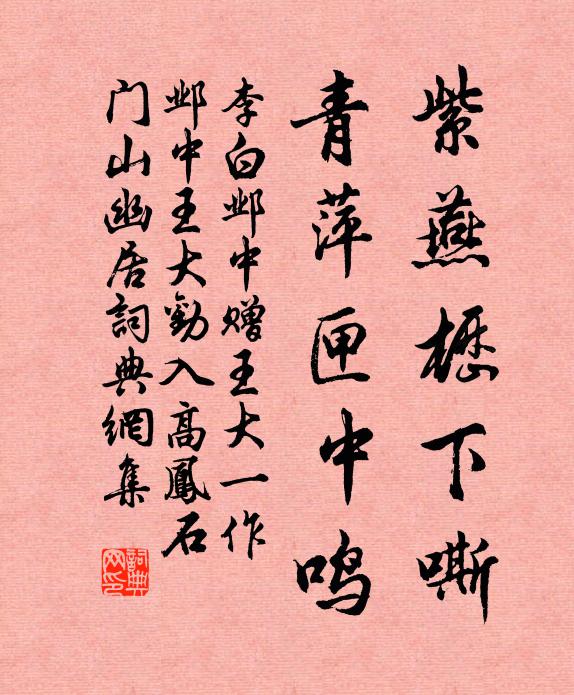 紫燕櫪下嘶
青萍匣中鸣
李白邺中赠王大一作
邺中王大劝入高鳳石
门山幽居詞典網集
詞典網印